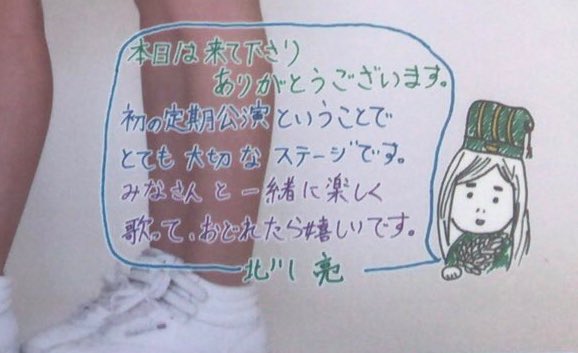 本日は来て下さり
ありがとうございます。
初の定期公演ということで
とても大切なステージです。
みなさんと一緒に楽しく
歌って、おどれたら嬉しいです。
北川 亮